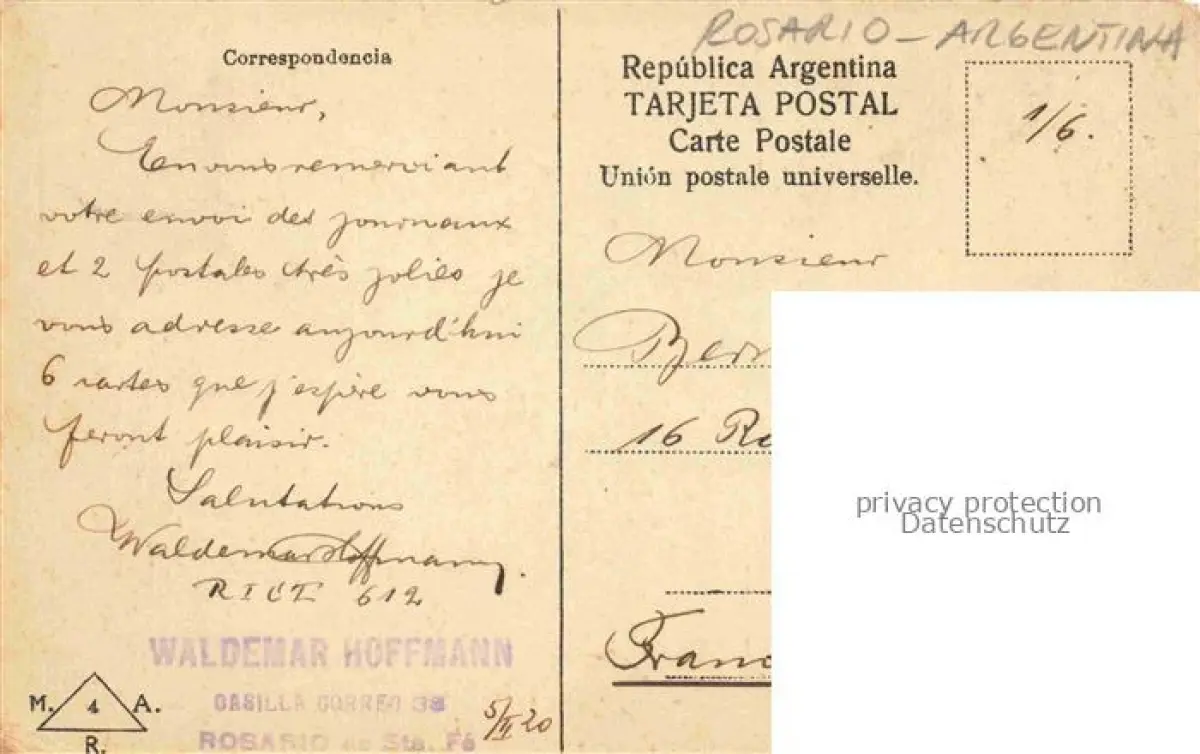 ROSARIO - ARGENTINA
Correspondencia
Monsieur,
En vous remerciant
votre envoi des journaux
et 2 postales très jolies je
vous adresse aujourd'hui
6 cartes que j'espère vous
feront plaisir.
Salutations
Waldemar Hoffmann.
RICI 612
WALDEMAR HOFFMANN
CASILLA CORREO 38
ROSARIO de Sta. Fé
5/II 20
M. 4 A.
R.
República Argentina
TARJETA POSTAL
Carte Postale
Unión postale universelle.
1/6.
Monsieur
16
privacy protection
Datenschutz